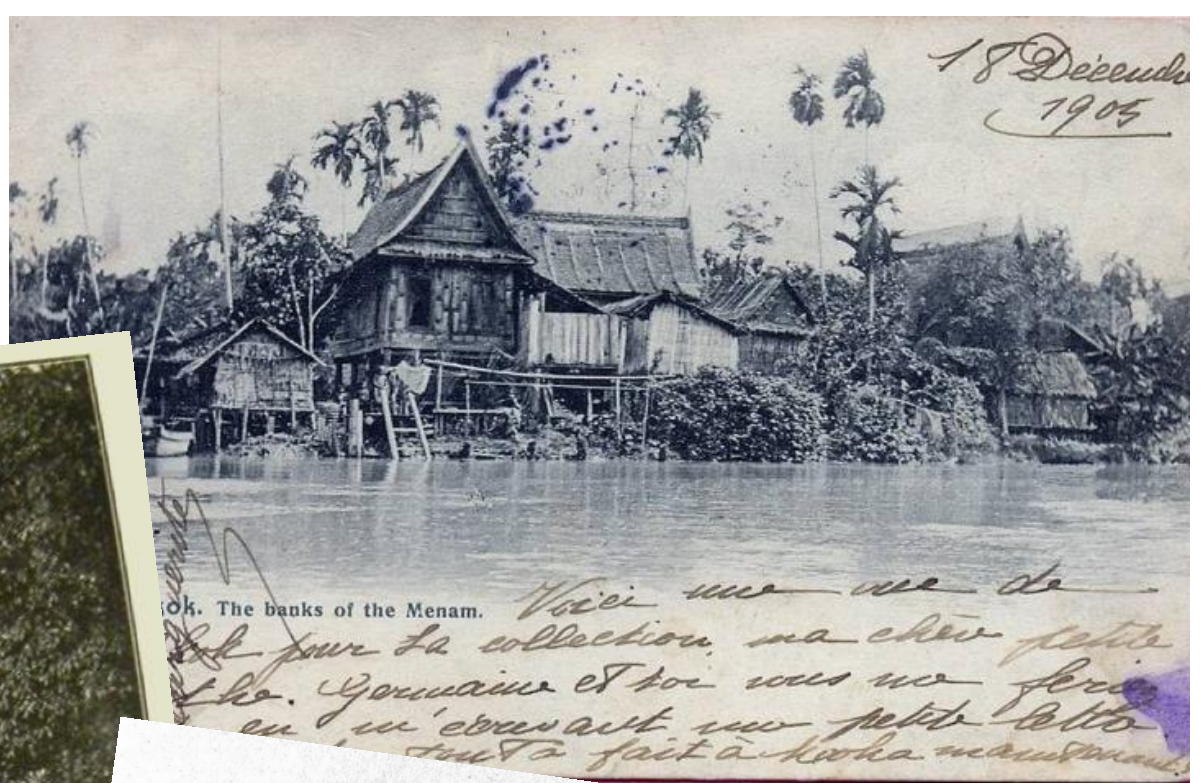 18 Décembre
1905
kok. The banks of the Menam.
Voici une vue de
kok pour ta collection, ma chère petite
the. Germaine et toi vous me ferie
en m'écrivant une petite lettre
fait à Mooka maintenant